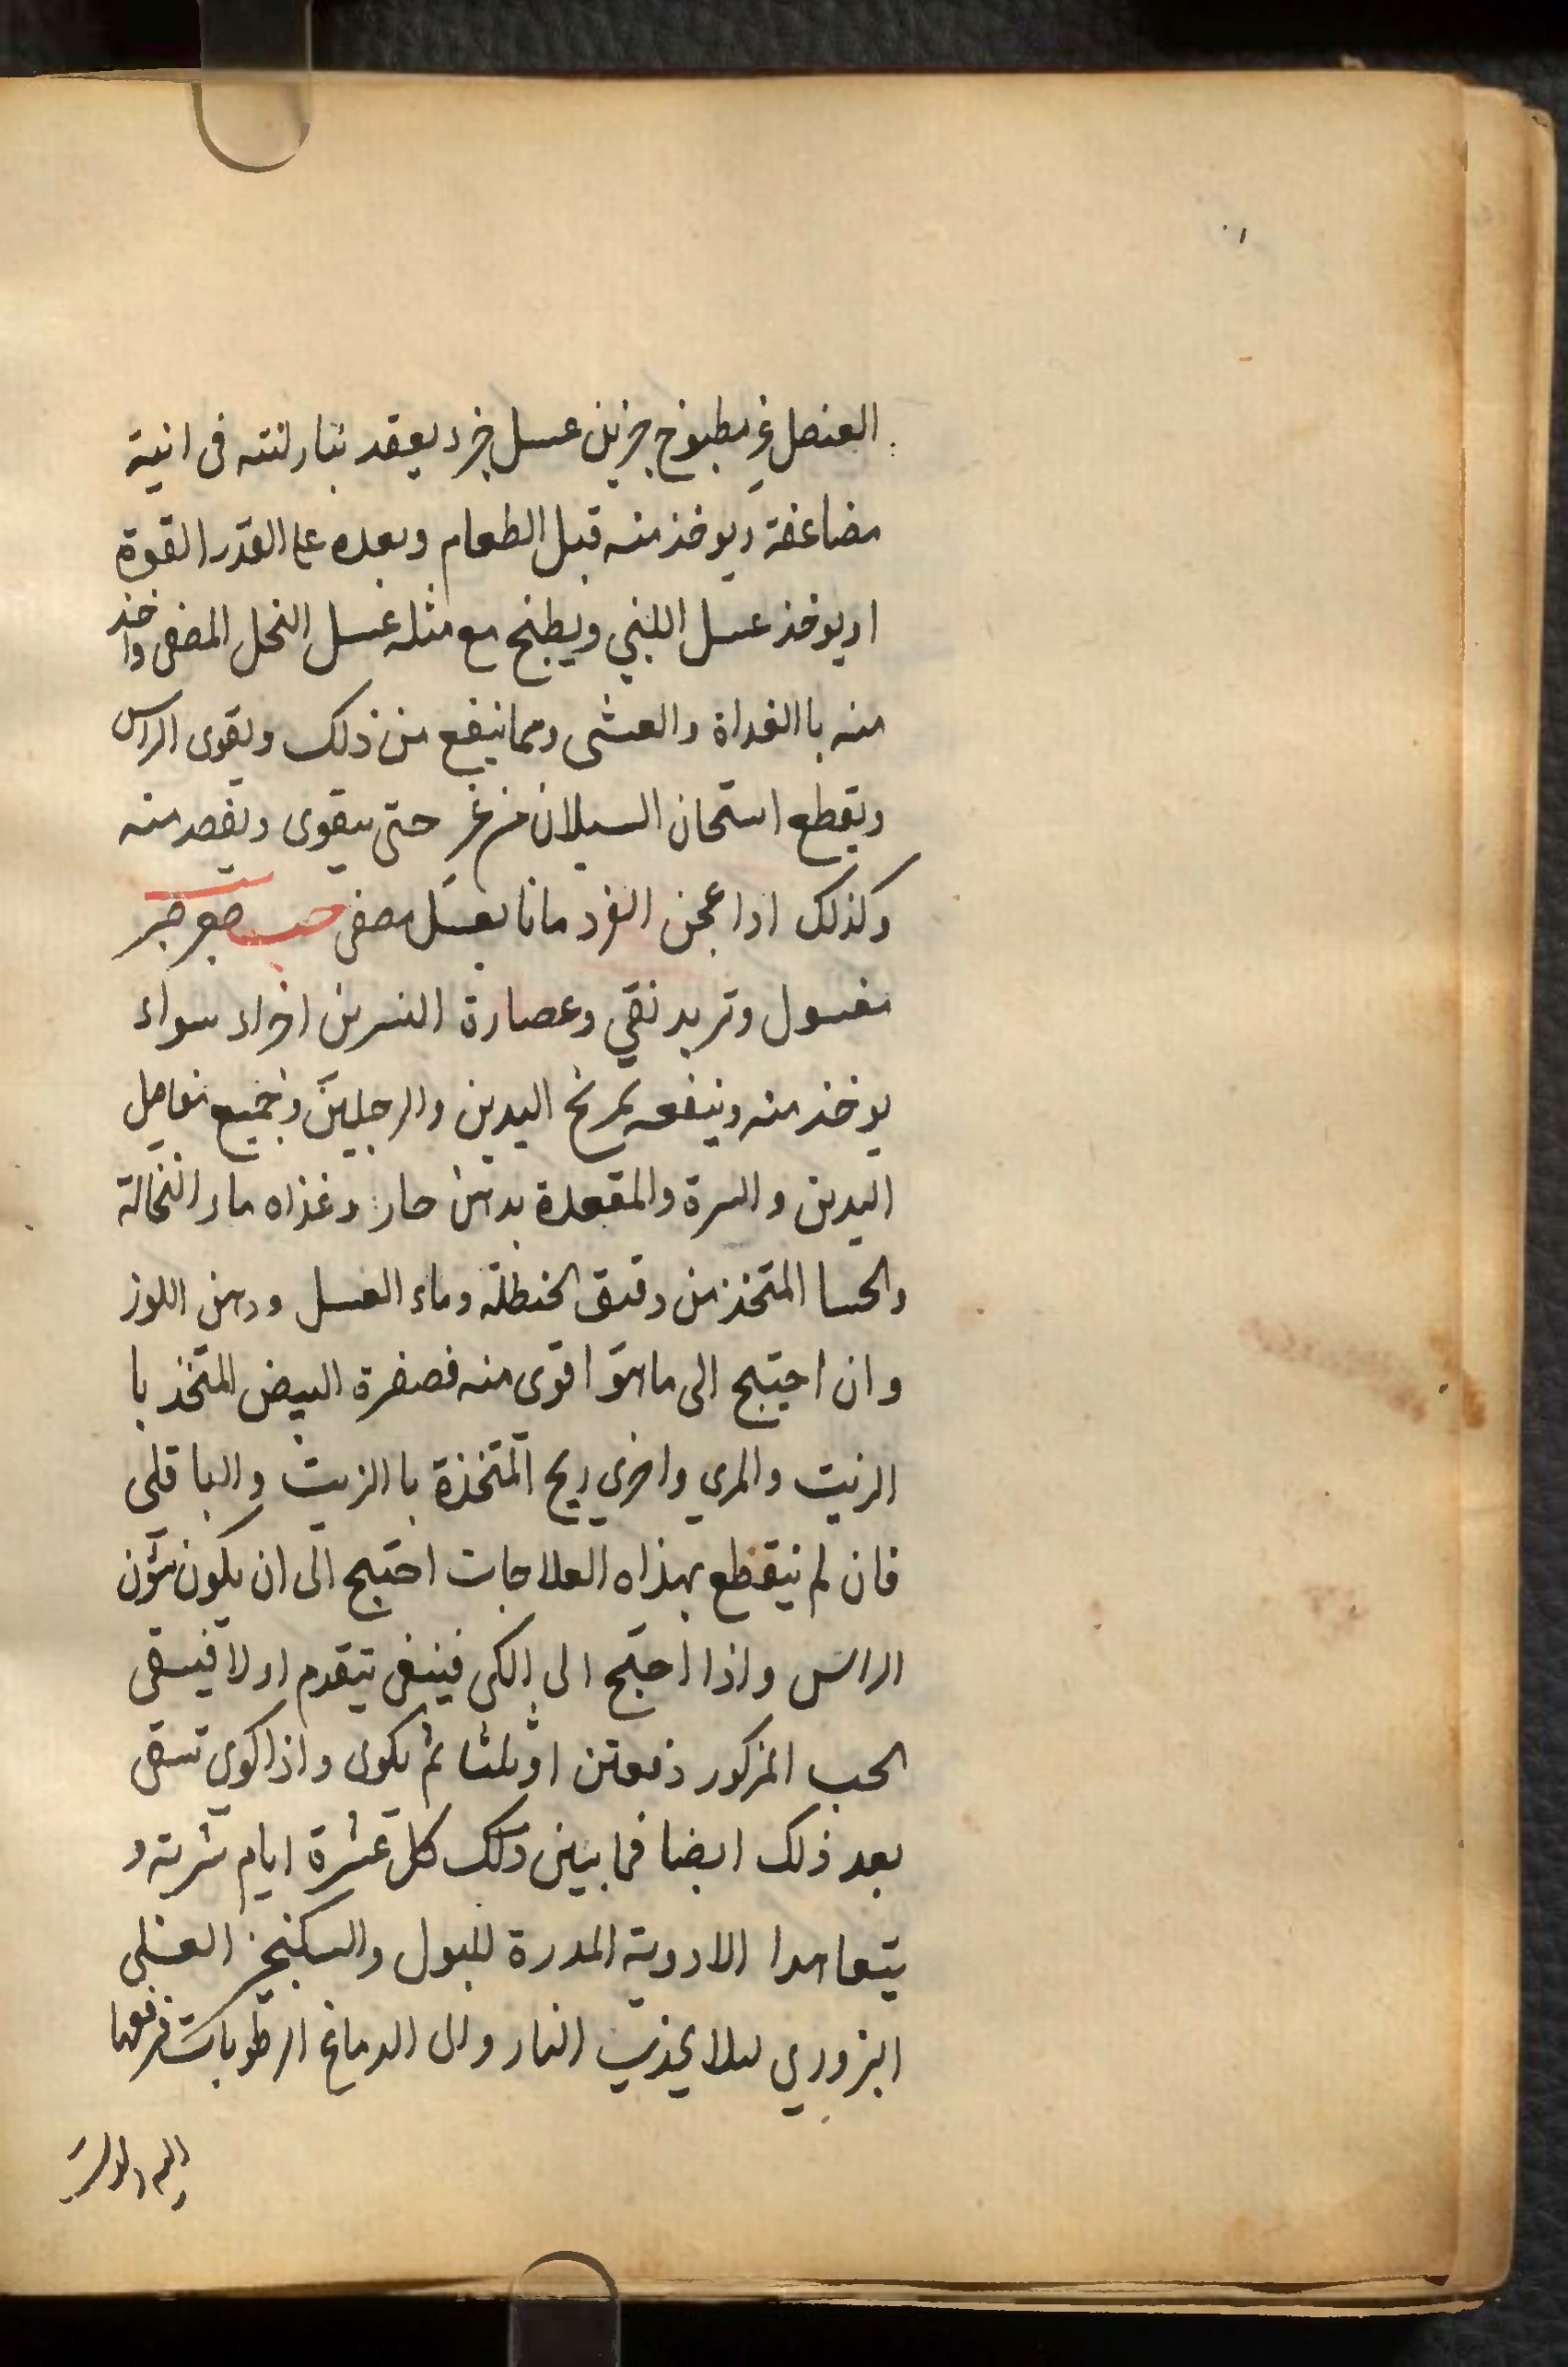 العنصل غير مطبوخ جزين عسل جزء يعقد بنار لينة فى انية
مضاعفة ويوخذ منه قبل الطعام وبعده على القدر القوة
او يوخذ عسل اللبني ويطبخ مع مثله عسل النحل المصفى واخذ
منه باالغداة والعشى ومما ينفع من ذلك ويقوى الراس
ويقطع استحان السيلان من غير حتى يقوى ويقصر منه
وكذلك اذا عجن القردمانا بعسل مصفى حب صبر
مغسول وتربد نقي وعصارة النسرين اجزاء سواء
يوخذ منه وينفعه تمريخ اليدين والرجلين وجميع مفاصل
اليدين والسرة والمقعدة بدهن حار وغذاه ماء النخالة
والحسا المتخذ من دقيق الحنطلة وماء العسل ودهن اللوز
وان احتيج الى ما هو اقوى منه فصفرة البيض المتخذ با
الزيت والمري واخرى ريح المتخذة باالزيت والباقلى
فان لم ينقطع بهذاه العلاجات احتيج الى ان يكون شؤن
الراس واذا احتيج الى الكى فينبغى يتقدم اولا فيسقى
الحب المزكور دفعتن او ثلثا ثم يكوى واذا كوي تسقى
بعد ذلك ايضا فما بين ذلك كل عشرة ايام شربة و
يتعاهدا الادوية المدرة للبول والسكنجبن العنصلى
البزوري لىلا يجذب النار والى الدماغ الرطوبات فرفعها